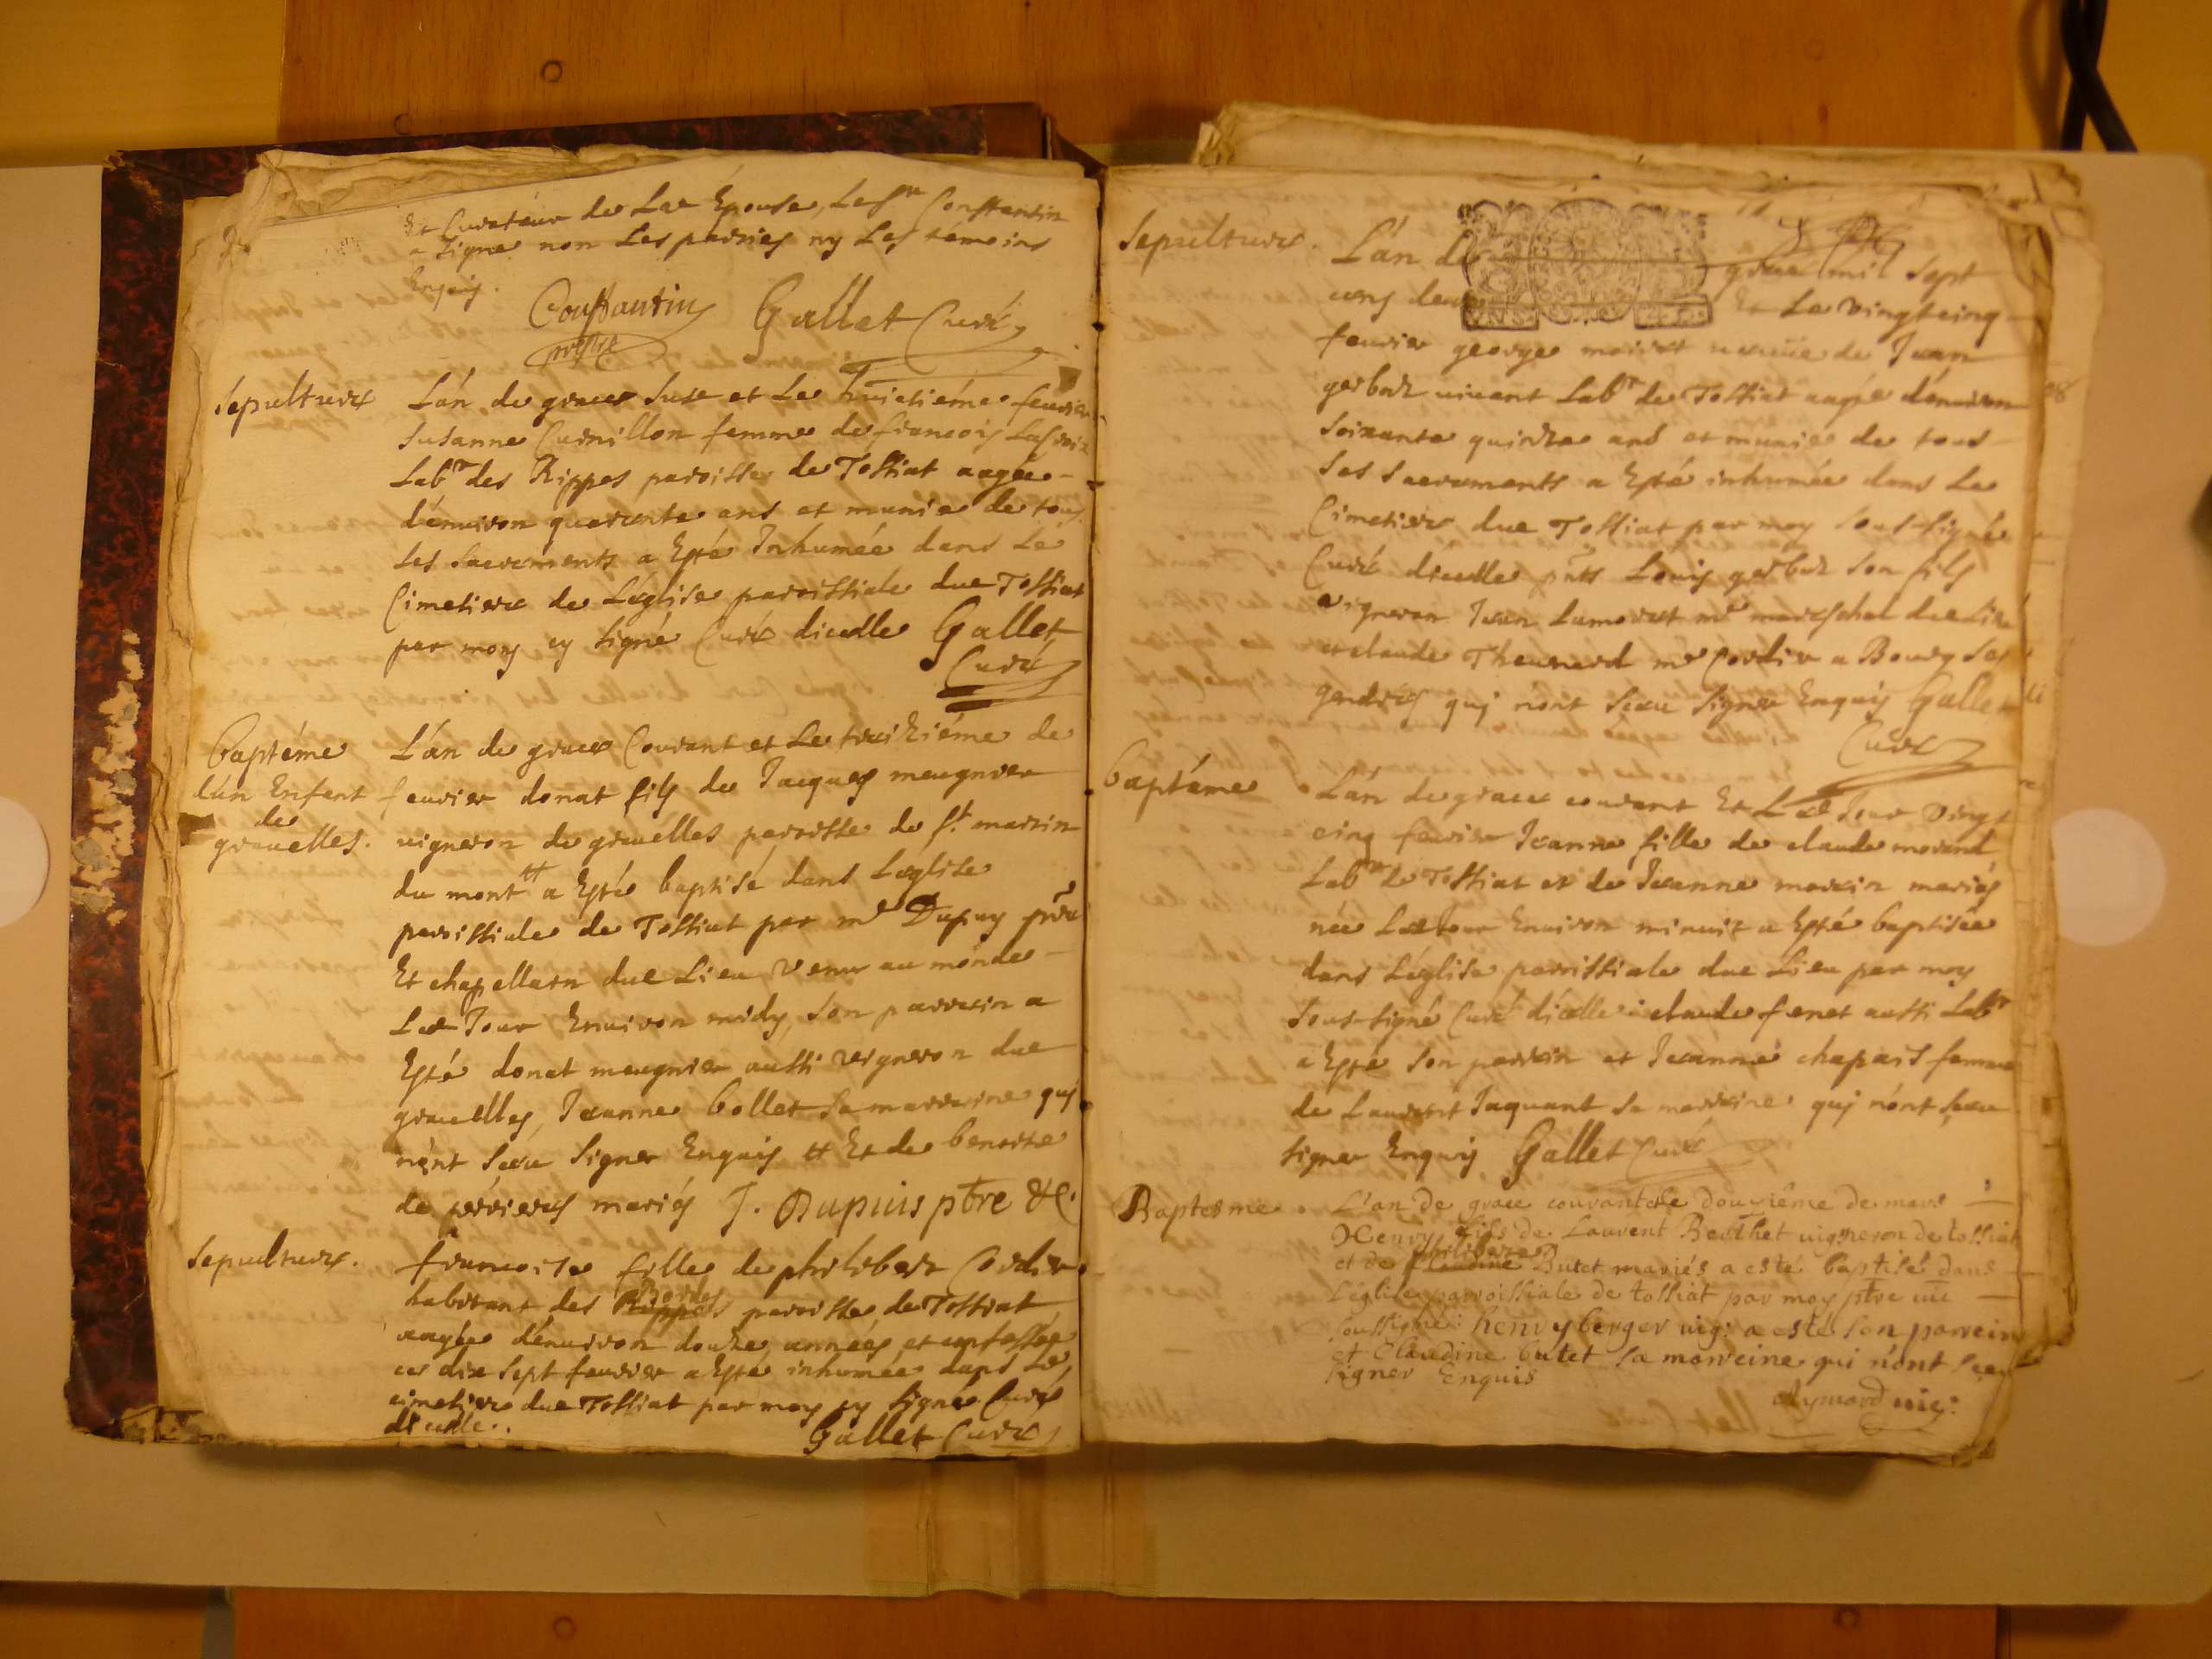 Et Curateur de Lae Épouse, Le sr Constantin
a signé non Les parties ny Les temoins
Enquis.
Constantin Gallet Curé
prestre
Sepulture
L'án de grace susd et Le huictiéme feurier
Susanne Curnillon femme de francois
Labr des Rippes paroisse de Tossiat aagée
d'enuiron quarante ans et munie de tous
Les sacrements a Esté Inhumée dans Le
Cimetiere de L'église paroissiale due Tossiat
par moy cy signé Curé dicelle Gallet
Curé
baptéme
d'un Enfant
de
grauelles.
L'án de grace Courant et Le treiziéme de
feurier donat fils de Jacques meugnier
uigneron de grauelles paroisse de st martin
du mont tt a Esté baptisé dans L'église
paroissiale de Tossiat par mr Dupuy ptre
Et chapellain due Lieu venu au monde
Led Jour Enuiron midy, son parrein a
Esté donat meugnier aussi vigneron due
grauelles, Jeanne bollet sa marreine quj
nónt sceu signer Enquis tt Et de benoite
de perriers mariés J. Dupuis ptre &c.
Sepulture.
francoise fille de philibert Cordier
habitant des Rippes paroisse de Tossiat
aagée d'enuiron douze années et confessée
ce dix sept feurier a Esté inhumée dans Le
cimetiere due Tossiat par moy cy signé Curé
dicelle.
Gallet Curé
Sepulture.
L'án de grace mil sept
cens deux Et Le vingtcinq
feurier george moiret ueuue de Jean
gerbaz uiuant Labr de Tossiat aagée d'enuiron
soixante quinze ans et munie de tous
Ses sacrements a Esté inhumée dans Le
Cimetiere due Tossiat par moy sous-signé
Curé dicelle pnts Loüis gerbaz son fils
vigneron Jean Lamoret mr mareschal due Lieu
et claude Theuenard mr Cordier a Bourg Ses
gendres quj nónt sceu signer Enquis Gallet
Curé
baptéme
L'án de grace courant Et Led Jour vingt
cinq feurier Jeanne fille de claude morand
Labr de Tossiat et de Jeanne marein mariés
née Led Jour Enuiron minuit a Esté baptisée
dans L'église paroissiale due Lieu par moy
sous-signé Curé dicelle: claude fenet aussi Labr
a Esté son parrein et Jeanne chapais femme
de Laurent Jaquant sa marreine quj nónt sceu
signer Enquis Gallet Curé
Baptesme.
L'an de grace courant et le douziême de mars
Henry fils de Laurent Berthet uigneron de tossiat
et de philiberte Butet mariés a esté baptisé dans
L'église parroissiale de tossiat par moy ptre uic
soussigné: henry berger uig: a esté son parrein
et Claudine butet sa marreine qui n'ont sceu
signer Enquis
Aymard uic: